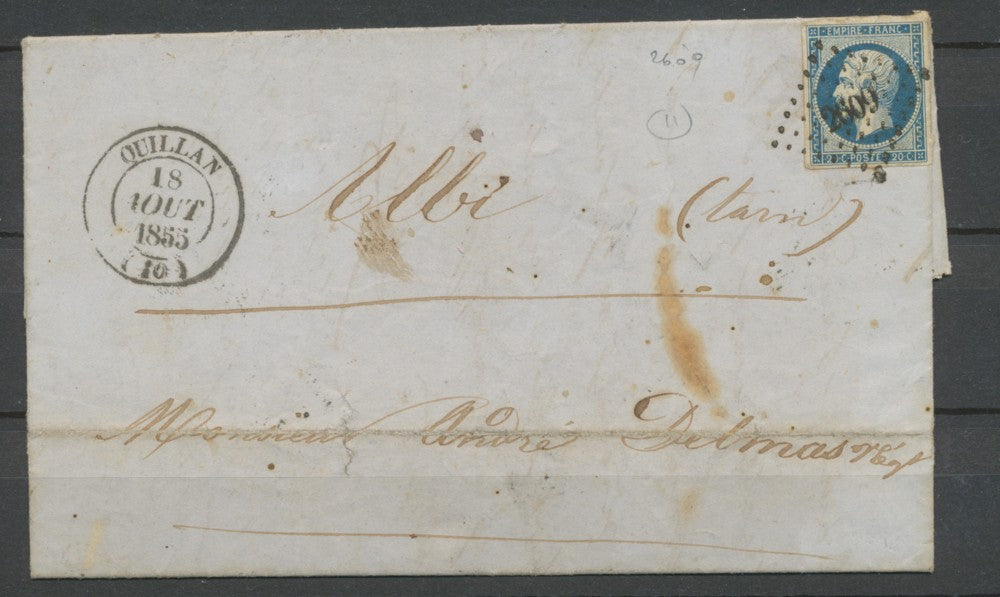 2609
11
EMPIRE · FRANC ·
2609
20 C · POSTES · 20 C
QUILLAN
18
AOUT
1855
(10)
Albi (tarn)
Monsieur André Delmas négt